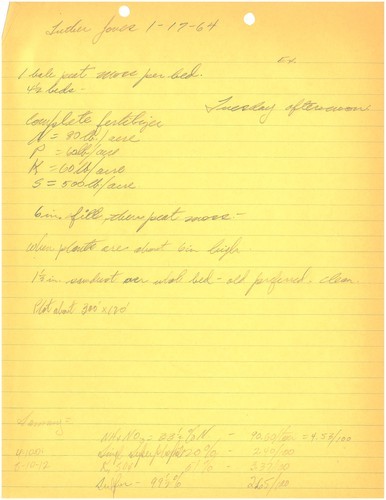 Luther Jones 1-17-64
Ex.
1 bale peat moss per bed.
40 beds -
Tuesday afternoon
Complete fertilizer
N = 90 lb/acre
P = 60 lb/acre
K = 60 lb/acre
S = 500 lb/acre
6 in. fill, then peat moss -
when plants are about 6 in high
1½ in sawdust over whole bed - old preferred. clean.
Plot about 300' x 120'
NH4NO3 - 33½ % N - = 4.53/100
20% - 2.40/100
3.37/100
Sulfur - 99½% 2.65/100